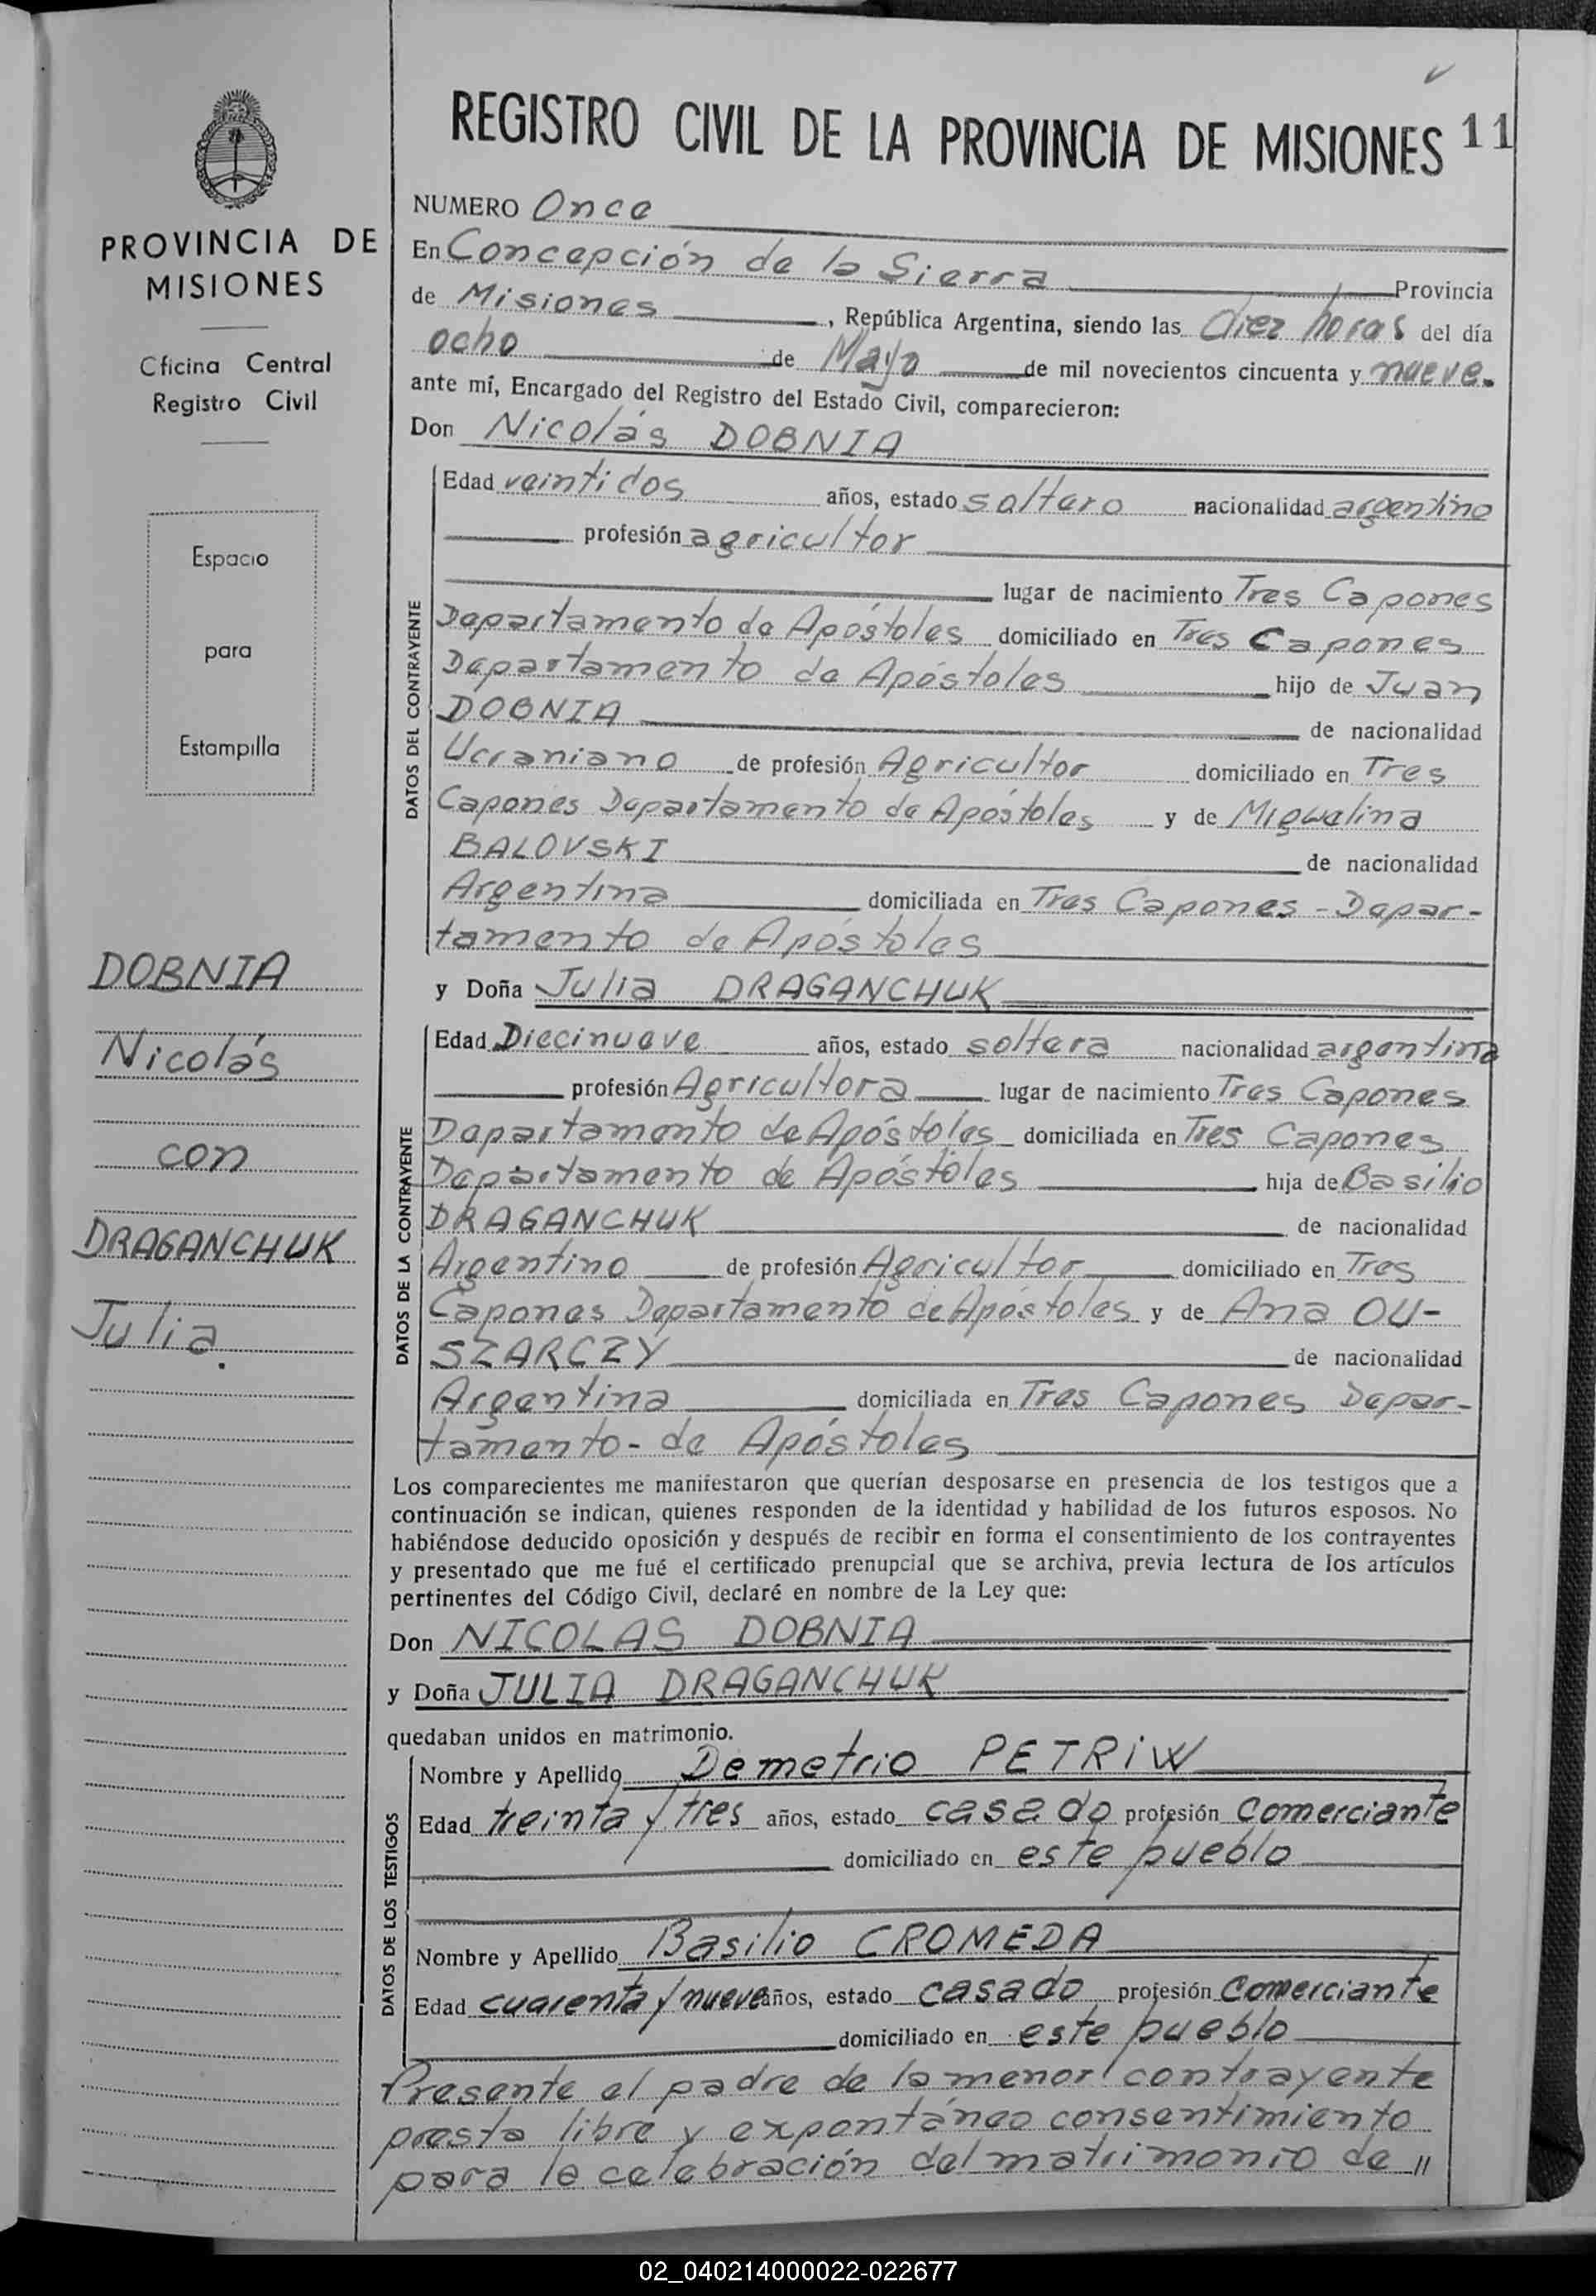 REGISTRO CIVIL DE LA PROVINCIA DE MISIONES 11
PROVINCIA DE
MISIONES
Oficina Central
Registro Civil
Espacio
para
Estampilla
DOBNIA
Nicolás
con
DRAGANCHUK
Julia.
NUMERO Once
En Concepción de la Sierra Provincia
de Misiones, República Argentina, siendo las diez horas del día
ocho de Mayo de mil novecientos cincuenta y nueve.
ante mí, Encargado del Registro del Estado Civil, comparecieron:
Don Nicolás DOBNIA
DATOS DEL CONTRAYENTE
Edad veintidos años, estado soltero nacionalidad argentino
profesión agricultor
lugar de nacimiento Tres Capones
Departamento de Apóstoles domiciliado en Tres Capones
Departamento de Apóstoles hijo de Juan
DOBNIA de nacionalidad
Ucraniano de profesión Agricultor domiciliado en Tres
Capones Departamento de Apóstoles y de Miguelina
BALOVSKI de nacionalidad
Argentina domiciliada en Tres Capones - Depar-
tamento de Apóstoles
y Doña Julia DRAGANCHUK
DATOS DE LA CONTRAYENTE
Edad Diecinueve años, estado soltera nacionalidad argentina
profesión Agricultora lugar de nacimiento Tres Capones
Departamento de Apóstoles domiciliada en Tres Capones
Departamento de Apóstoles hija de Basilio
DRAGANCHUK de nacionalidad
Argentino de profesión Agricultor domiciliado en Tres
Capones Departamento de Apóstoles y de Ana OU-
SZARCZY de nacionalidad
Argentina domiciliada en Tres Capones Depar-
tamento - de Apóstoles
Los comparecientes me manifestaron que querían desposarse en presencia de los testigos que a
continuación se indican, quienes responden de la identidad y habilidad de los futuros esposos. No
habiéndose deducido oposición y después de recibir en forma el consentimiento de los contrayentes
y presentado que me fué el certificado prenupcial que se archiva, previa lectura de los artículos
pertinentes del Código Civil, declaré en nombre de la Ley que:
Don NICOLAS DOBNIA
y Doña JULIA DRAGANCHUK
quedaban unidos en matrimonio.
DATOS DE LOS TESTIGOS
Nombre y Apellido Demetrio PETRiW
Edad treinta y tres años, estado casado profesión Comerciante
domiciliado en este pueblo
Nombre y Apellido Basilio CROMEDA
Edad cuarenta y nueve años, estado casado profesión Comerciante
domiciliado en este pueblo
Presente el padre de la menor contrayente
presta libre y expontáneo consentimiento
para la celebración del matrimonio de //
02_040214000022-022677